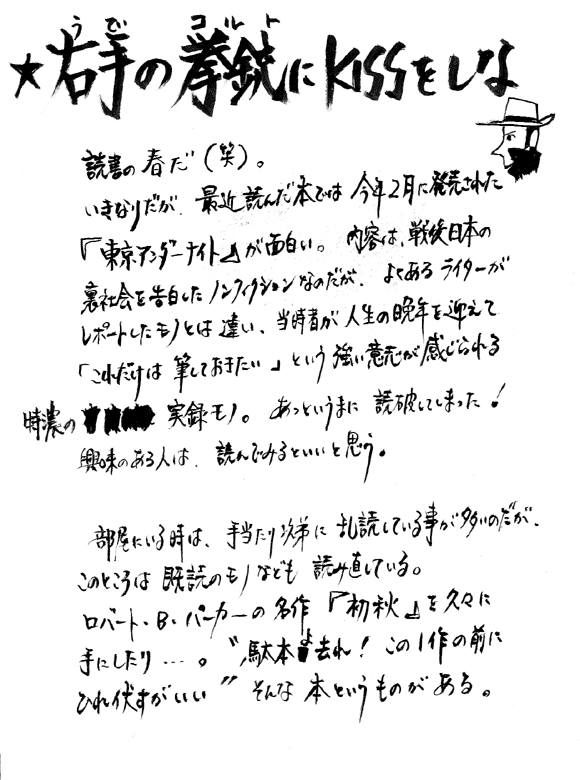 うで コルト
★右手の拳銃にKISSをしな
読書の春だ(笑)。
いきなりだが、最近読んだ本では 今年2月に発売された
『東京アンダーナイト』が面白い。内容は、戦後日本の
裏社会を告白したノンフィクションなのだが、よくあるライターが
レポートしたモノとは違い、当時者が人生の晩年を迎えて
「これだけは筆しておきたい」という強い意志が感じられる
特濃の 実録モノ。あっというまに 読破してしまった!
興味のある人は、読んでみるといいと思う。
部屋にいる時は、手当たり次第に乱読している事が多いのだが、
このところは既読のモノなども読み直している。
ロバート・B・パーカーの名作『初秋』を久々に
手にしたり…。〝駄本よ去れ!この1作の前に
ひれ伏すがいい〟そんな本というものがある。